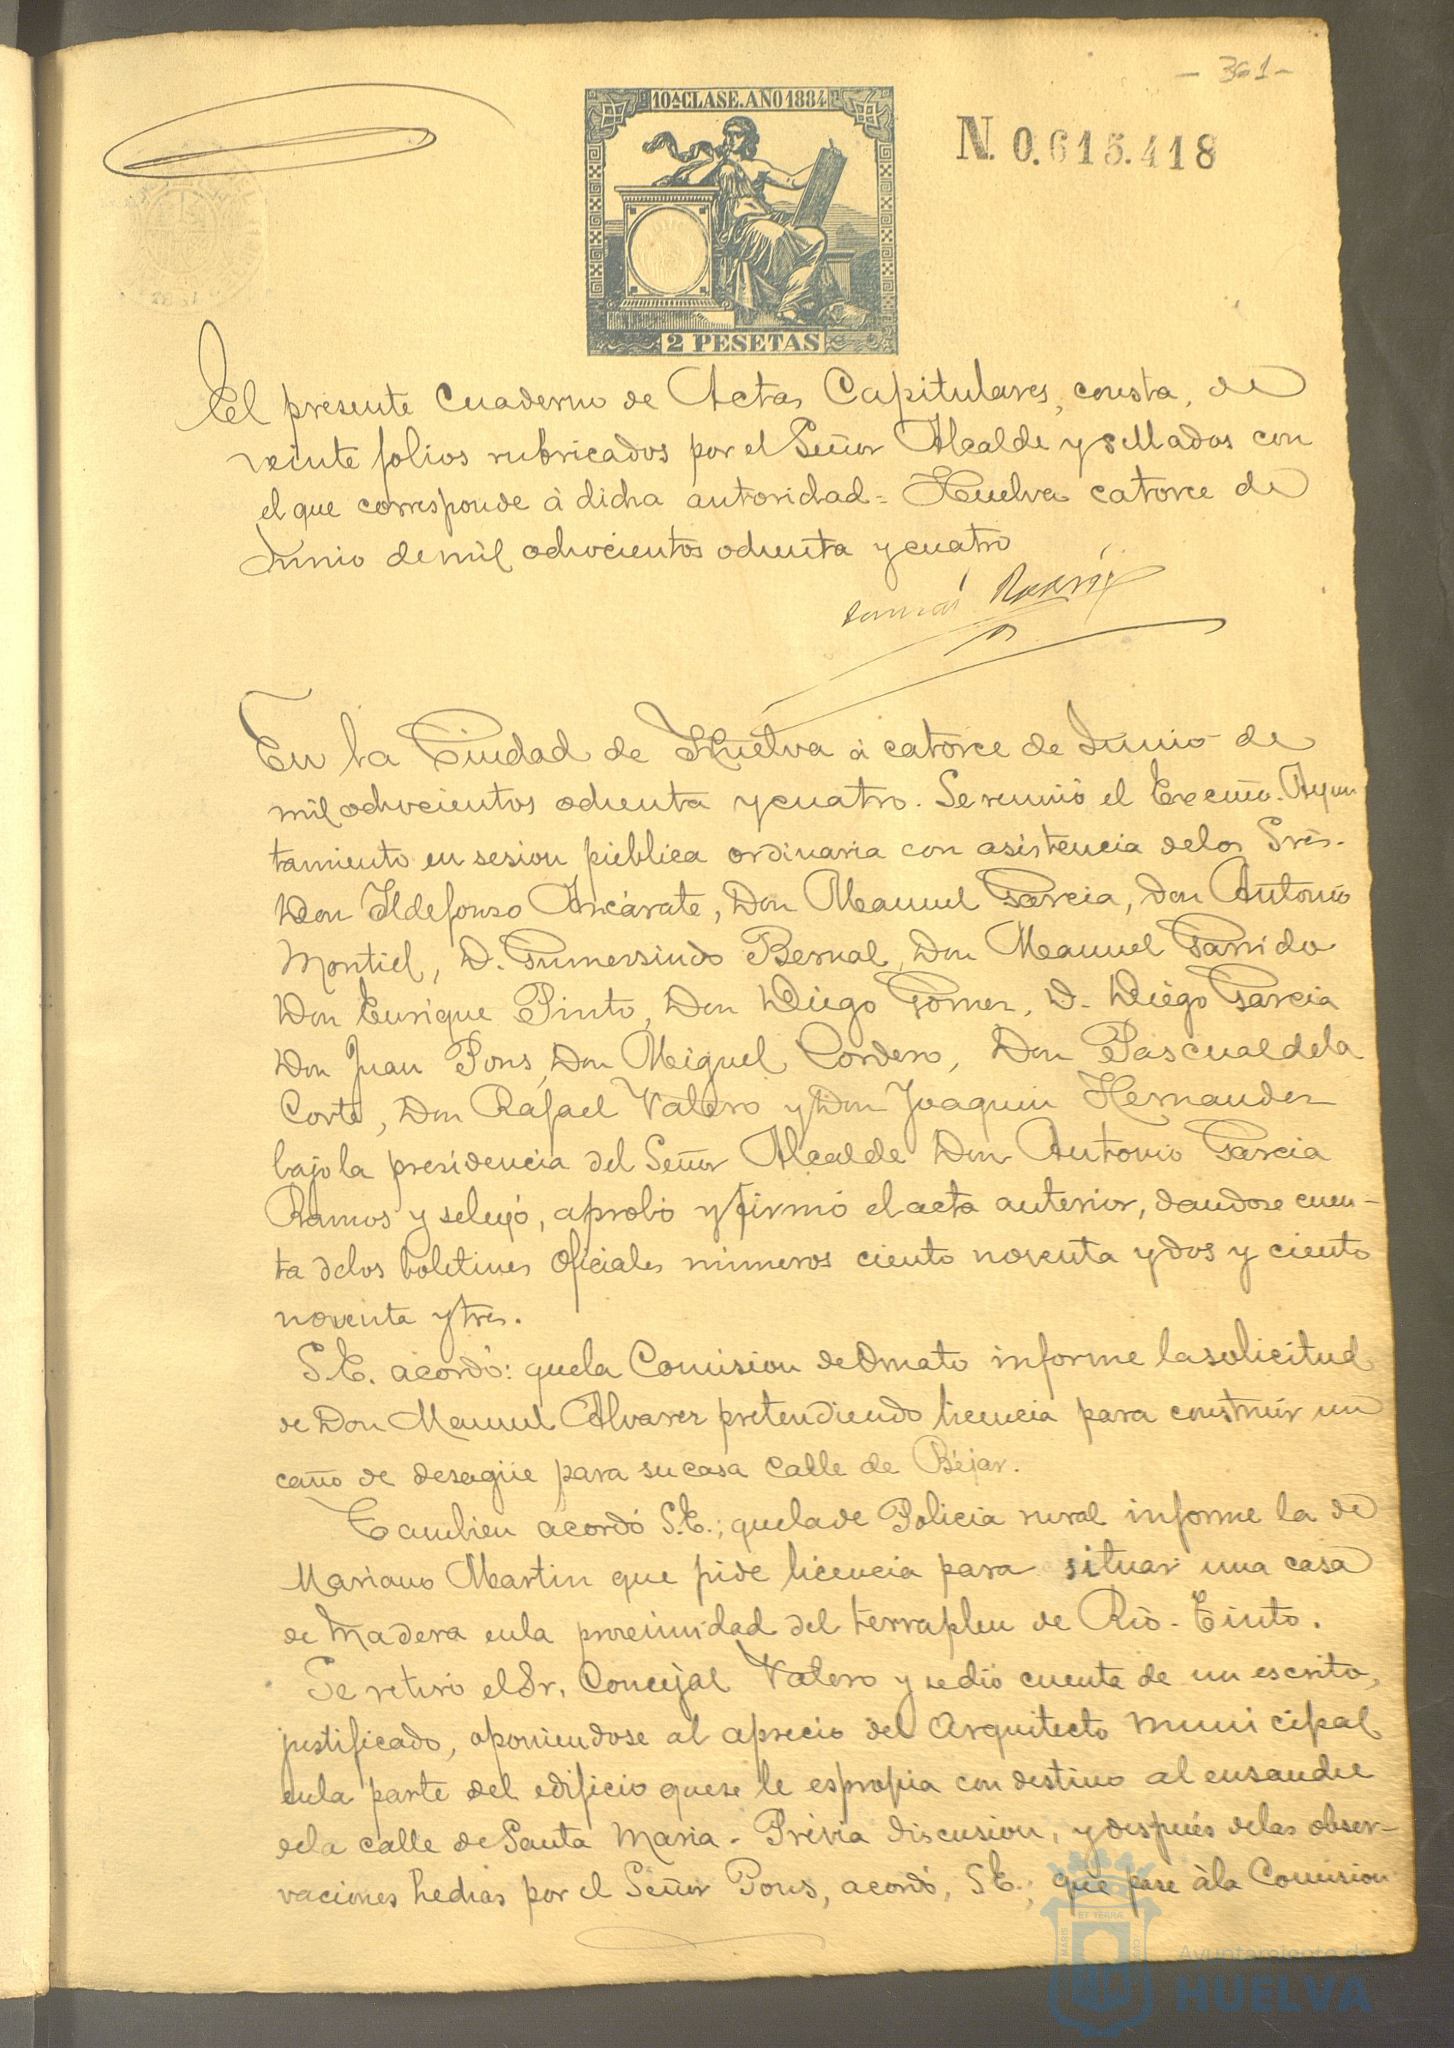 - 361 -
10ª CLASE. AÑO 1884
N. 0.615.418
2 PESETAS
El presente Cuaderno de Actas Capitulares, consta, de
veinte folios rubricados por el Señor Alcalde y sellados con
el que corresponde à dicha autoridad = Huelva catorce de
Junio de mil ochocientos ochenta y cuatro
En la Ciudad de Huelva à catorce de Junio de
mil ochocientos ochenta y cuatro. Se reunió el Excmo. Ayun
tamiento en sesion pública ordinaria con asistencia delos Sres.
Don Ildefonso Ancárate, Don Manuel Garcia, Don Antonio
Montiel, D. Gumersindo Bernal, Don Manuel Garrido
Don Enrique Pinto, Don Diego Gomez, D. Diego Garcia
Don Juan Pons, Don Miguel Cordero, Don Pascual dela
Corte, Don Rafael Valero y Don Joaquin Hernandez
bajo la presidencia del Señor Alcalde Don Antonio Garcia
Ramos y se leyó, aprobó y firmó el acta anterior, dandose cuen-
ta delos boletines Oficiales números ciento noventa y dos y ciento
noventa y tres.
S.E. acordó: que la Comision de Ornato informe la solicitud
de Don Manuel Alvarez pretendiendo licencia para construir un
caño de desagüe para su casa Calle de Béjar.
Tambien acordó S.E.; que la de Policia rural informe la de
Mariano Martin que pide licencia para situar una casa
de Madera en la proximidad del terraplen de Rio-Tinto.
Se retiró el Sr. Concejal Valero y se dió cuenta de un escrito,
justificado, oponiendose al aprecio del Arquitecto municipal
en la parte del edificio que se le espropia con destino al ensanche
dela calle de Santa Maria - Prévia discusion, y después delas obser-
vaciones hechas por el Señor Pons, acordó, S.E.; que pase à la Comision
MARIS
ET TERRÆ
Ayuntamiento de
HUELVA